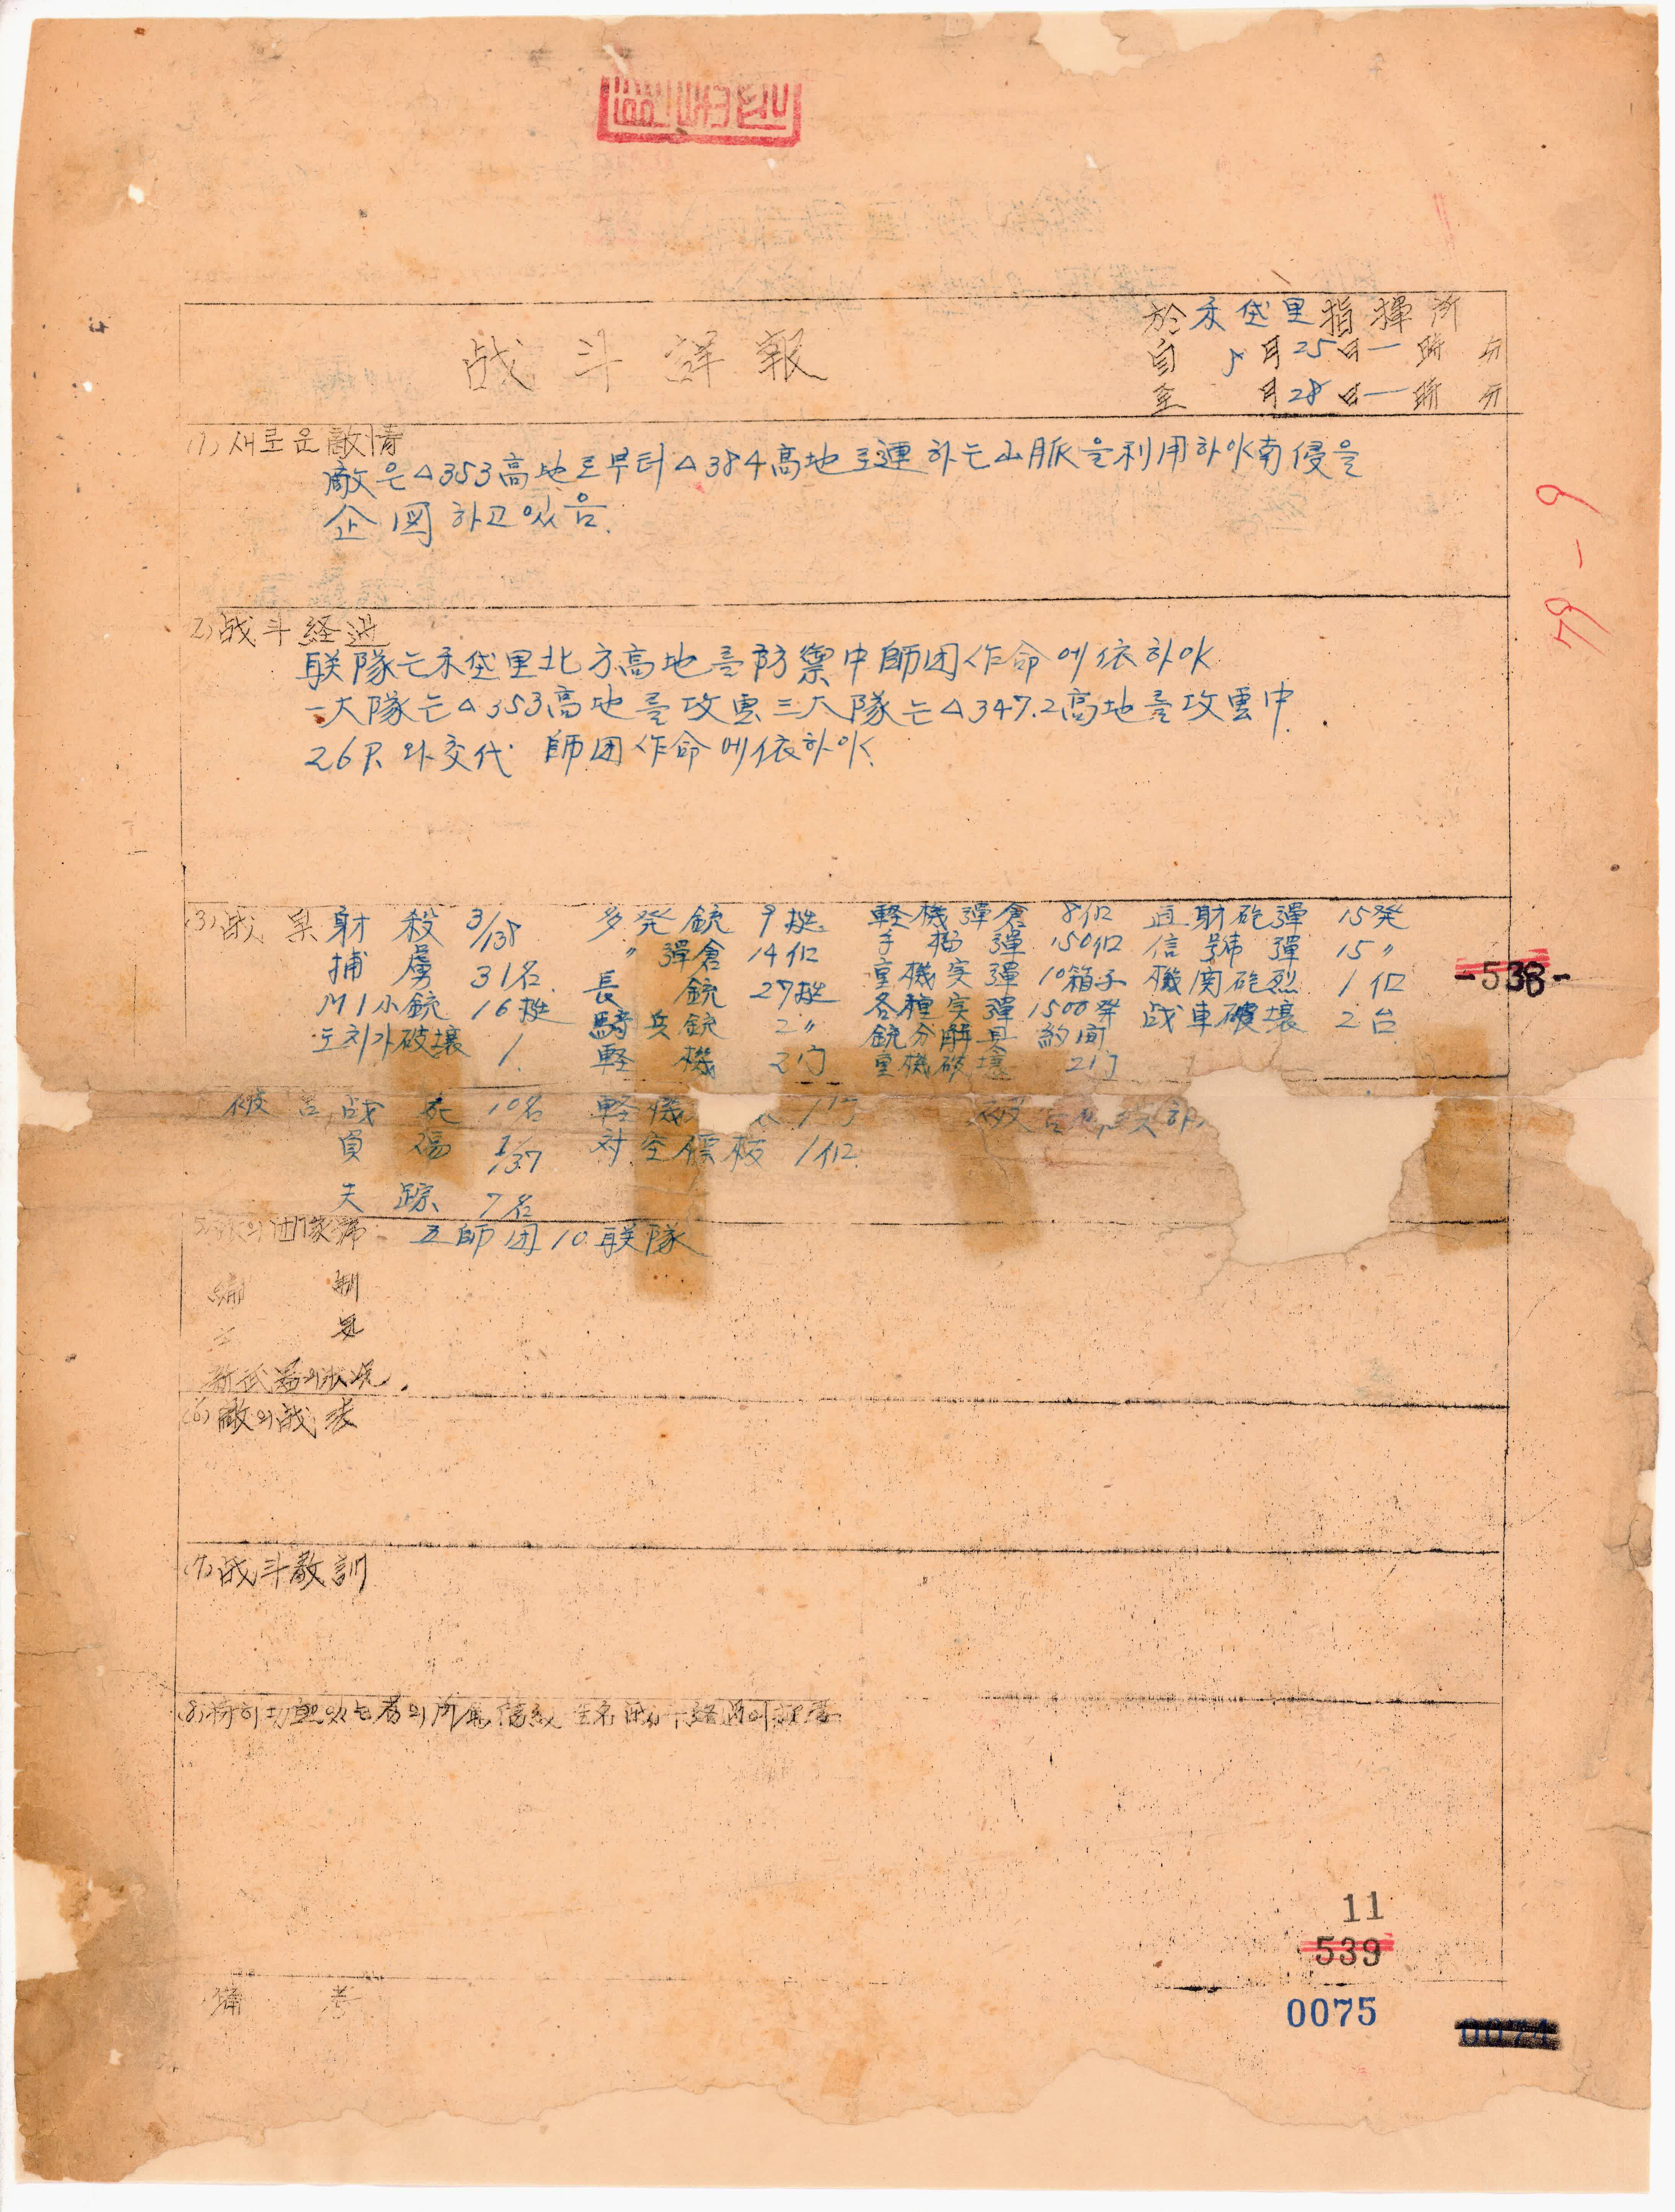 於禾岱里指揮所
战斗詳報
自 月25日一時 分
至 月28日一時 分
(1) 새로운敵情
敵은△353高地로부터△384高地로連하는山脈을利用하야南侵을
企図하고있음.
2) 战斗経過
联隊는禾岱里北方高地를防禦中師団作命에依하야
一大隊는△353高地를攻雲三大隊는△347.2高地를攻雲中.
26R와交代 師団作命에依하야.
(3) 战果 射殺 3/138 多発銃 9挺 軽機彈倉 8亿 直射砲彈 15発
捕虜 31名 〃彈倉 14亿 手榴彈 150亿 信號彈 15〃
M1小銃 16挺 長銃 27挺 重機実彈 10箱子 機関砲烈 1亿
도치카破壞 1. 騎兵銃 2〃 各種実彈 1500発 战車破壞 2台
軽機 2门 銃分解具 約
重機破壞 2门
被害 战死 10名 軽機 1门
負傷 1/37 対空標板 1亿
失踪 7名
五師団10联隊
編 制
新武器의状況.
(6) 敵의战法
(7) 战斗敎訓
備 考
79-9
-538-
11
539
0075
0074